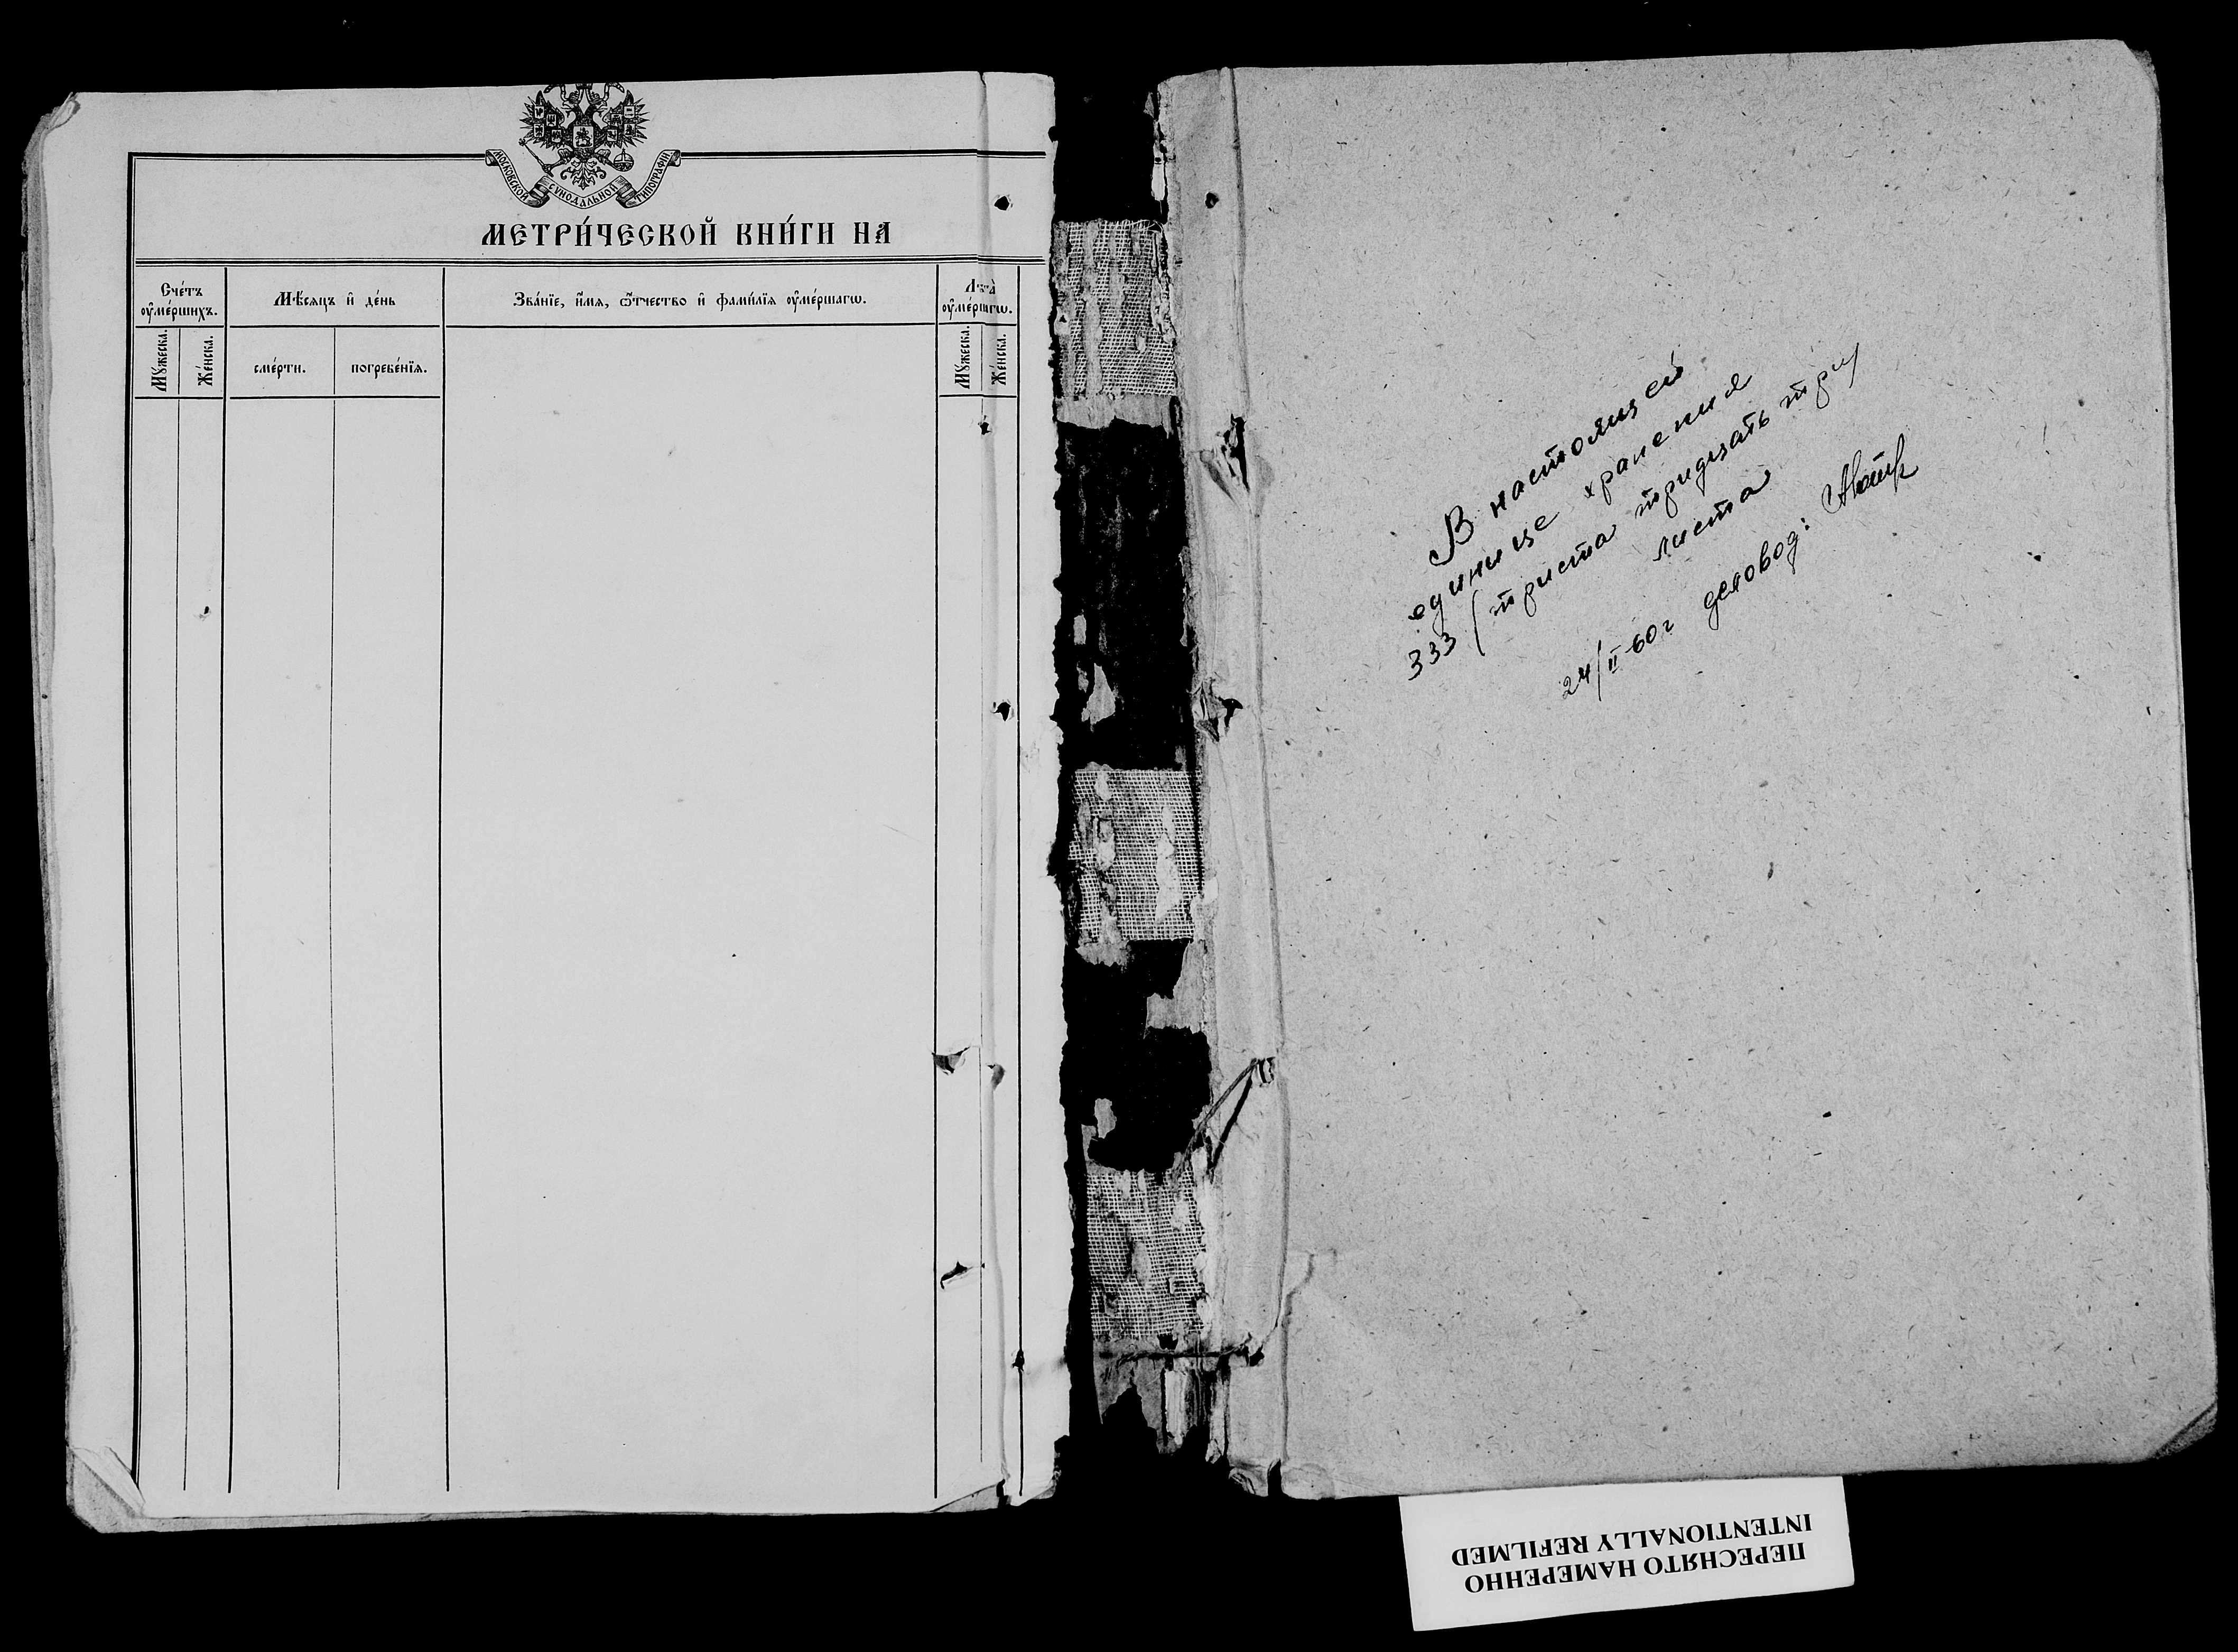 МОСКОВСКОЙ СѴНОДАЛЬНОЙ ТИПОГРАФІИ
МЕТРИ́ЧЕСКОЙ КНИ́ГИ НА
Сче́тъ
оу҆ме́ршихъ.
Мѣ́сяцъ и҆ де́нь
Зва́нїе, и҆́мя, ѻ҆́тчество и҆ фами́лїя оу҆ме́ршагѡ.
Лѣта̀
оу҆ме́ршагѡ.
Мꙋ́жеска.
Же́нска.
сме́рти.
погребе́нїя.
Мꙋ́жеска.
Же́нска.
В настоящей
единице хранения
333 (триста тридцать три)
листа
24/II-60 г деловод:
ПЕРЕСНЯТО НАМЕРЕННО
INTENTIONALLY REFILMED